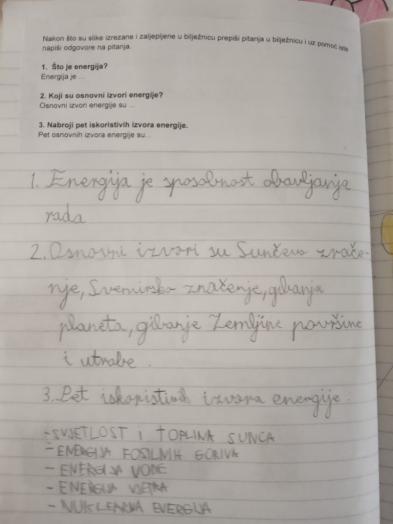 Nakon što su slike izrezane i zaljepljene u bilježnicu prepiši pitanja u bilježnicu i uz pomoć
napiši odgovore na pitanja.
1. Što je energija?
Energija je ...
2. Koji su osnovni izvori energije?
Osnovni izvori energije su ...
3. Nabroji pet iskoristivih izvora energije.
Pet osnovnih izvora energije su ...
1. Energija je sposobnost obavljanja
rada
2. Osnovni izvori su Sunčevo zrače-
nje, Svemirsko značenje, gibanja
planeta, gibanje Zemljine površine
i utrobe.
3. Pet iskoristivih izvora energije:
- SVJETLOST I TOPLINA SUNCA
- ENERGIJA FOSILNIH GORIVA
- ENERGIJA VODE
- ENERGIJA VJETRA
- NUKLEARNA ENERGIJA